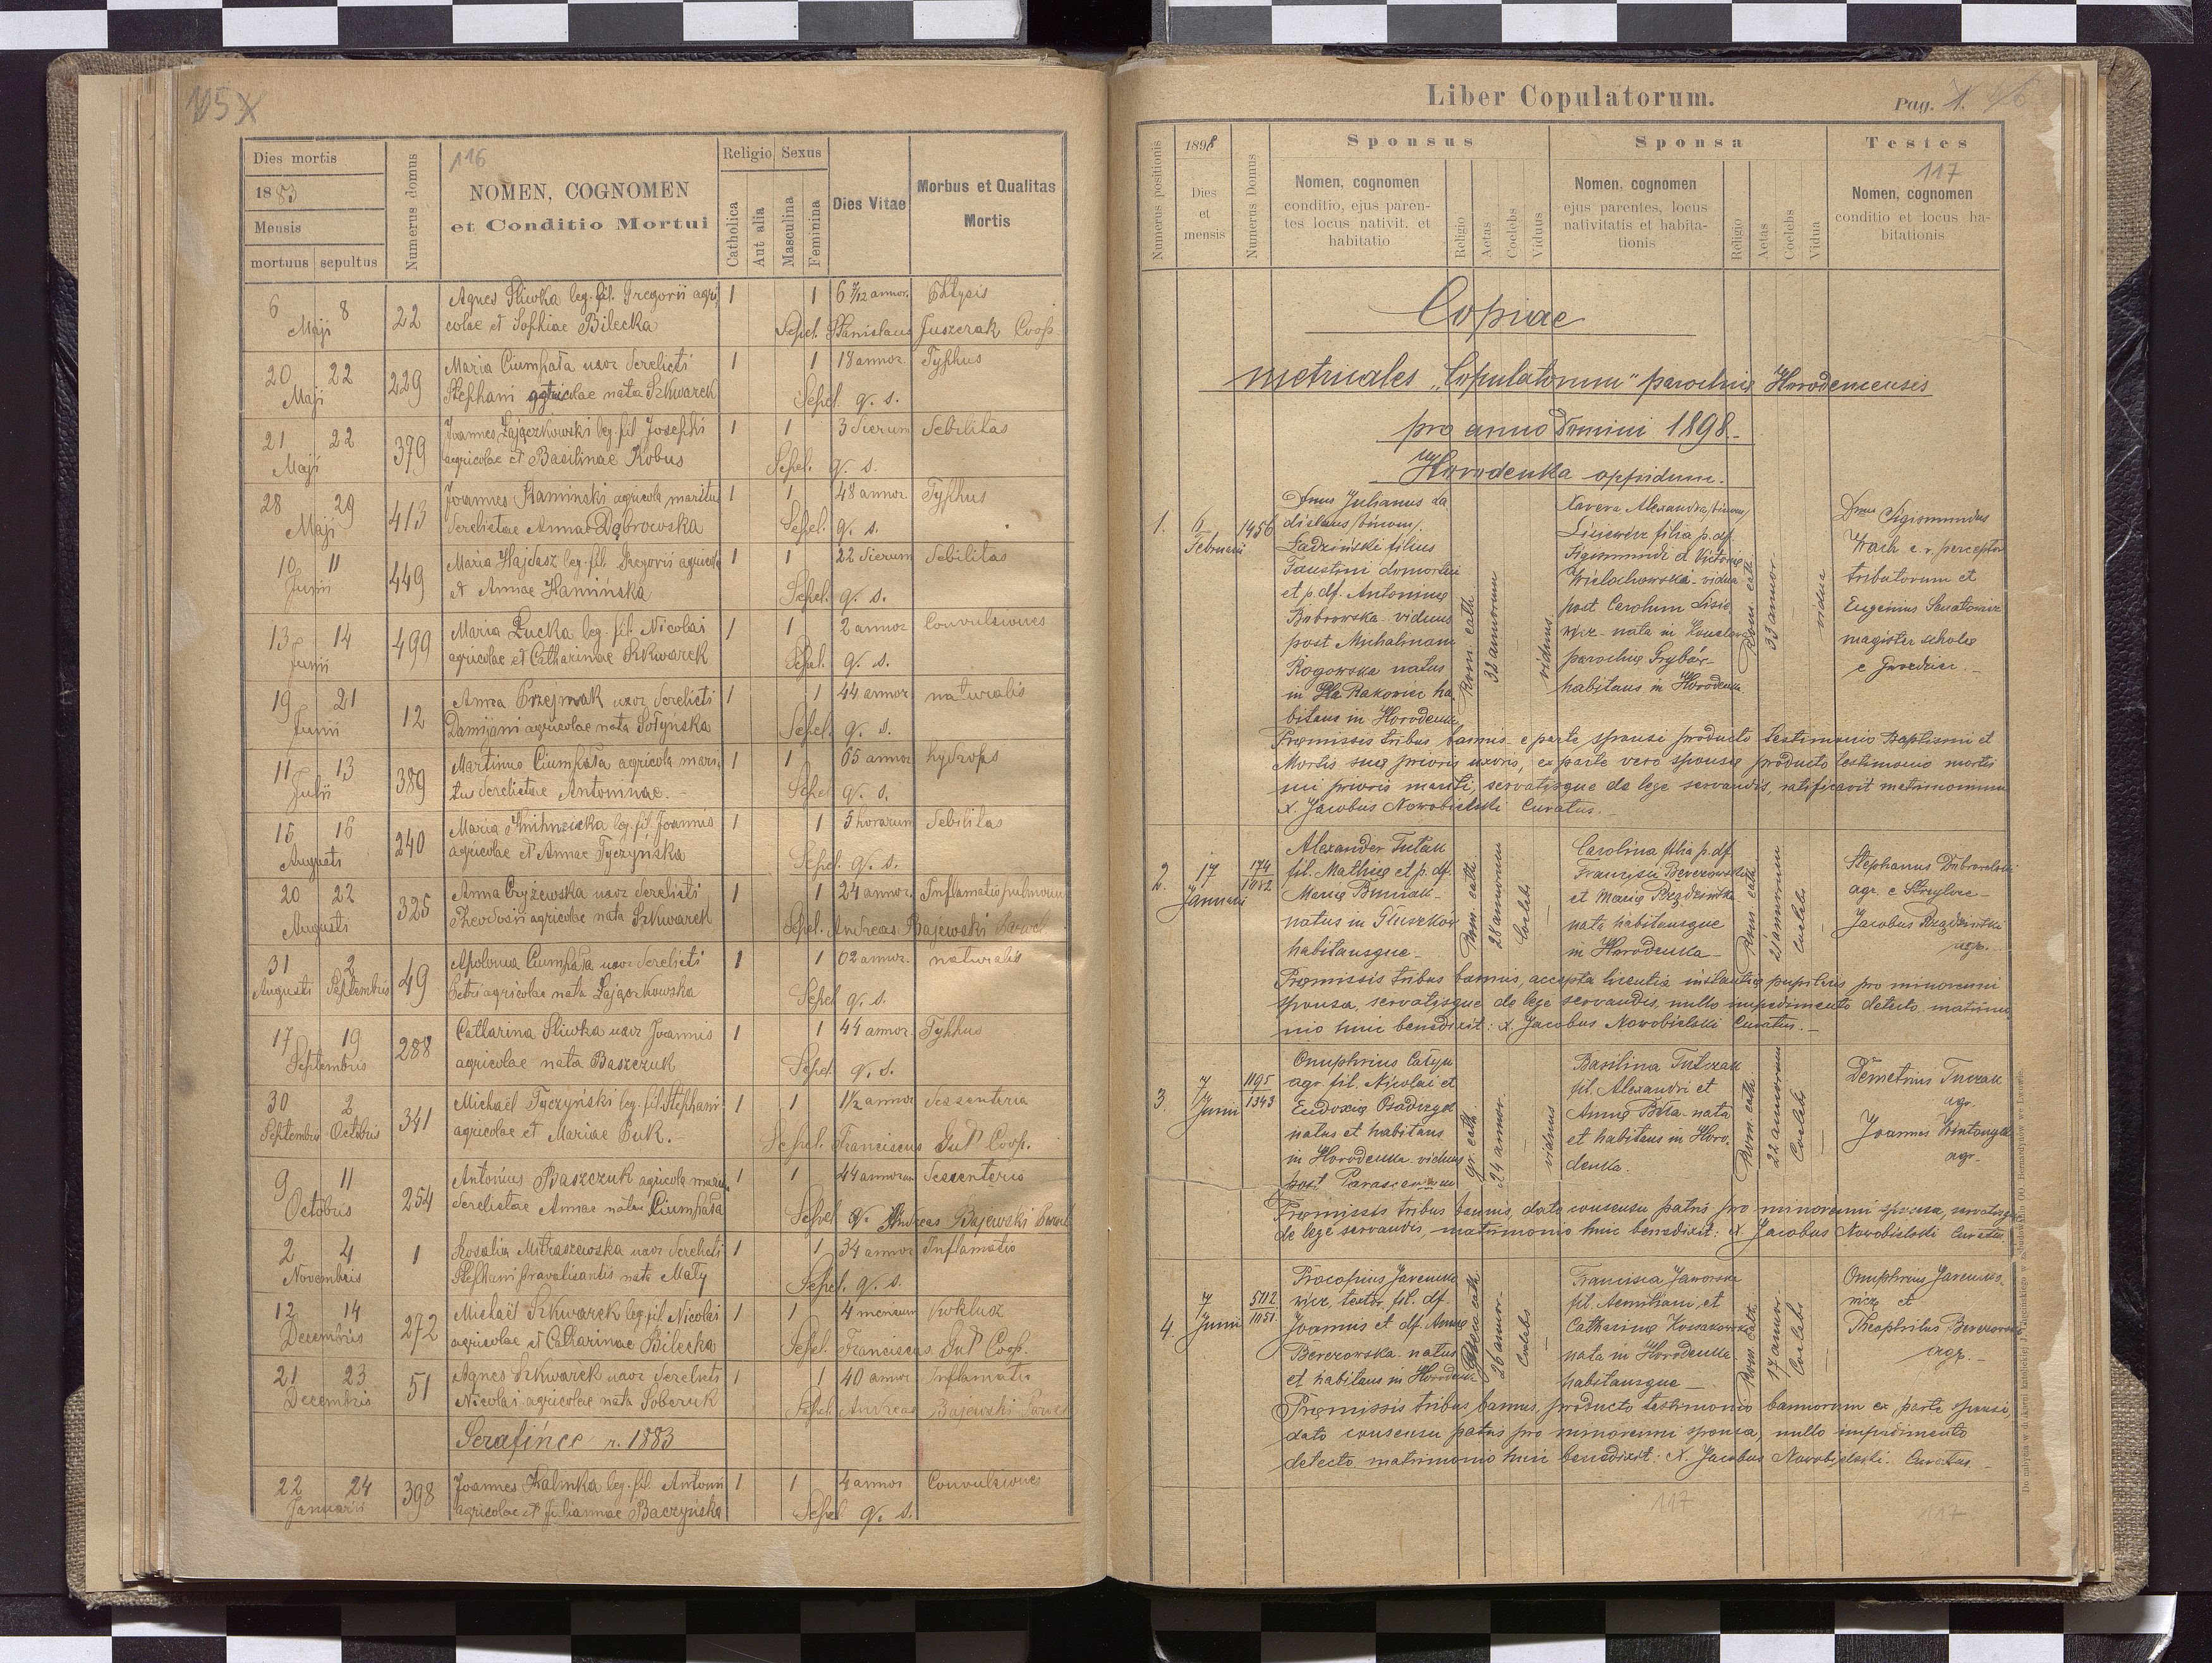 115
Dies mortis
1883
Mensis
mortuus sepultus
Numerus domus
116
NOMEN, COGNOMEN
et Conditio Mortui
Religio Sexus
Catholica
Aut alia
Masculina
Feminina
Dies Vitae
Morbus et Qualitas
Mortis
6 8 22 Agnes Śliwka leg. fil. Gregorii agri 1 1 6 7/12 annor. Phtysis
Maji colae et Sophiae Bilecka Sepel. Stanislaus Juszczak Coop.
20 22 229 Maria Ciumpała uxor derelicti 1 1 18 annor. Typhus
Maji Stephani agricolae nata Szkwarek Sepel. q. s.
21 22 379 Joannes Zajączkowski leg. fil Josephi 1 1 3 dierum debilitas
Maji agricolae et Basilinae Robus Sepel. q. s.
28 29 413 Joannes Kaminski agricola maritus 1 1 48 annor. Typhus
Maji derelictae Annae Dąbrowska Sepel. q. s.
10 11 449 Maria Hajdasz leg. fil. Gregorii agricolae 1 1 22 dierum debilitas
Junii et Annae Kamińska Sepel. q. s.
13 14 499 Maria Łucka leg. fil. Nicolai 1 1 2 annor Convulsiones
Junii agricolae et Catharinae Szkwarek Sepel. q. s.
19 21 12 Anna Przejmak uxor derelicti 1 1 44 annor naturalis
Junii Damijani agricolae nata Sołyńska Sepel. q. s.
11 13 389 Martinus Ciumpała agricola mari 1 1 65 annor hydrops
Julii tus derelictae Antoninae. Sepel q. s.
15 16 240 Maria leg. fil. Joannis 1 1 5 horarum debilitas
Augusti agricolae et Annae Tyczyńska Sepel. q. s.
20 22 325 Anna Czyżewska uxor derelicti 1 1 24 annor. Inflamatio pulmonum
Augusti Theodosii agricolae nata Szkwarek Sepel. Andreas Bajewski
31 2 49 Apolonia Ciumpała uxor derelicti 1 1 62 annor. naturalis
Augusti Septembris Petri agricolae nata Zajączkowska Sepel q. s.
17 19 288 Catharina Śliwka uxor Joannis 1 1 44 annor. Typhus
Septembris agricolae nata Baszczuk Sepel. q. s.
30 2 341 Michaël Tyczyński leg. fil. Stephani 1 1 1 1/2 annor dessenteria
Septembris Octobris agricolae et Mariae Puk. Sepel. Franciscus Gut Coop.
9 11 254 Antonius Baszczuk agricola maritus 1 1 44 annorum dessenteria
Octobris derelictae Annae natae Ciumpała Sepel Andreas Bajewski
2 4 1 Rosalia Mitraszewska uxor derelicti 1 1 34 annor Inflamatio
Novembris Stephani nata Mały Sepel. q. s.
12 14 272 Michaël Szkwarek leg. fil. Nicolai 1 1 4 mensium Koklusz
Decembris agricolae et Catharinae Bilecka Sepel. Franciscus Gut Coop.
21 23 51 Agnes Szkwarek uxor derelicti 1 1 40 annor Inflamatio
Decembris Nicolai agricolae nata Soberuk Sepel. Andreas Bajewski
Serafińce r. 1883
22 24 398 Joannes Kalinka leg. fil. Antonii 1 1 4 annor Convulsiones
Januarii agricolae et Juliannae Baczyńska Sepel q. s.
Liber Copulatorum.
Pag. 1.
Numerus positionis
1898
Dies
et
mensis
Numerus Domus
Sponsus
Nomen, cognomen
conditio, ejus paren-
tes locus nativit. et
habitatio
Religio
Aetas
Coelebs
Viduus
Sponsa
Nomen, cognomen
ejus parentes, locus
nativitatis et habita-
tionis
Religio
Aetas
Coelebs
Vidua
Testes
117
Nomen, cognomen
conditio et locus ha-
bitationis
Copiae
metricales "Copulatorum" parochiae Horodencensis
pro anno Domini 1898.
Horodenka oppidum.
1.
6
Februarii
1456
Dnus Julianus La
dislaus /binom/
Ładziński filius
Faustini
et p. df. Antoninę
Bobrowska viduus
post Michalinam
Rogowska natus
in Rakowiec ha
bitans in Horodenka
Rom. cath
32 annorum
viduus
Xavera Alexandra /binom/
Lisiewicz filia p. df.
Sigismundi et Victorię
Wielochowska vidua
post Carolum Lisie
wicz nata in
parochię Grybów
habitans in Horodenka
Rom. cath
33 annor
vidua
Dnus Sigismundus
Wach c. r. perceptor
tributorum et
Eugenius Senatowicz
magister scholae
e Gwoździec.
Premissis tribus bannis e parte sponsi producto testimonio Baptismi et
Mortis suę prioris uxoris, ex parte vero sponsę producto testimonio mortis
sui prioris mariti, servatisque de lege servandis, ratificavit matrimonium
X. Jacobus Nowobielski Curatus.
2.
17
Januarii
174
1082
Alexander Tutak
fil. Mathię et p. df.
Marię Buniak
natus in Głuszków
habitansque
Rom. cath.
28 annorum
Coelebs
Carolina filia p. df
Francisci Berezowski
et Marię Rządzińska
nata habitansque
in Horodenka
Rom. cath.
21 annorum
Coelebs
Stephanus Dobrowolski
agr. e Strzylcze
Jacobus Rządziński
agr.
Premissis tribus bannis, accepta licentia instantię pupilaris pro minorenni
sponsa, servatisque de lege servandis, nullo impedimento detecto matrimo
nio huic benedixit: X. Jacobus Nowobielski Curatus.
3.
7
Junii
1195
1343
Onuphrius Całyn
agr. fil. Nicolai et
Eudoxię
natus et habitans
in Horodenka viduus
post
gr. cath.
24 annor.
viduus
Basilina Tutczak
fil. Alexandri et
Annę Biła nata
et habitans in Horo
denka.
Rom. cath.
22 annorum
Coelebs
Demetrius Tuczak
agr.
Joannes
agr.
Premissis tribus bannis, dato consensu patris pro minorenni sponsa, servatisque
de lege servandis, matrimonio huic benedixit: X. Jacobus Nowobielski Curatus.
4.
7
Junii
5112
1151.
Procopius Jaremko
wicz textor, fil. df.
Joannis et df. Annę
Berezowska natus
et habitans in Horodenka
26 annor.
Coelebs
Francisca Jaworska
fil. Aemiliani et
Catharinę Kossakowska
nata in Horodenka
habitansque
Rom. cath.
17 annor.
Coelebs
Onuphrius Jaremko
wicz et
Theophilus Berezowski
agr.
Premissis tribus bannis, producto testimonio bannorum ex parte sponsi,
dato consensu patris pro minorenni sponsa, nullo impedimento
detecto matrimonio huic benedixit: X. Jacobus Nowobielski Curatus.
117
117